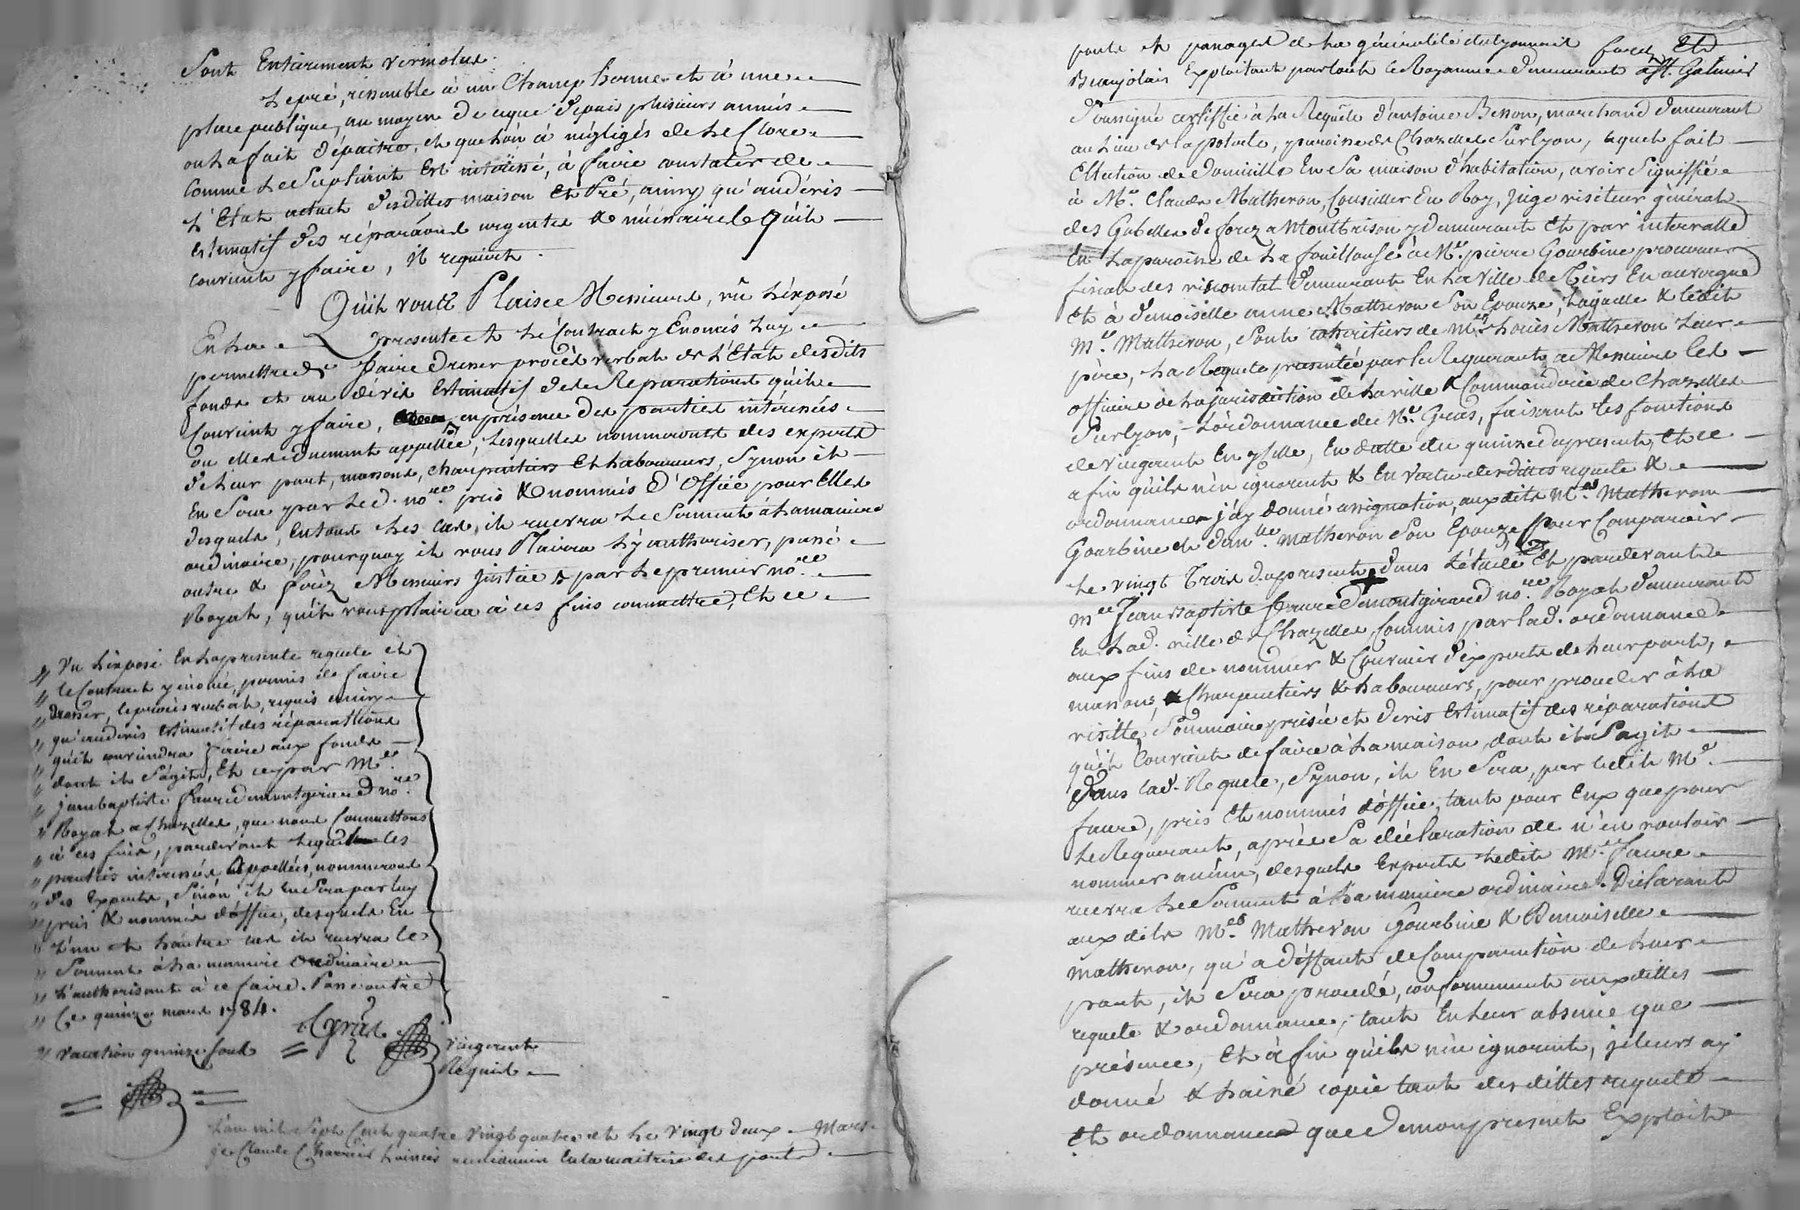 Sont Entierement vermolus.
Le pré, resemble à un Champ herme et à une
place publique, au moyen de ceque depuis plusieurs années
on La fait depaitre, et que l'on à négligés de Le Clore
Comme Le Supliant Est intéressé, à faire constater de
L'Etat actuel desdittes maison Et Pré, ainsy qu'au devis
estimatif des réparaõns urgentes & nécéssaires Quil
convient y faire, il requiert.
Qu'il vous Plaise Messieurs, vû L'exposé
En La presente et Le Contract y Enoncés Luy
permettre de faire dresser procès verbal de L'Etat desdits
fonds et au dévis Estimatif des Reparations qu'il
Convient y faire, en présence des parties intéressées
ou elles duement appellées, Lesquelles nommeront des experts
de Leur part, massons, charpentiers Et Laboureurs, Synon il
En Sera par Led. no.re pris & nommés d'Office pour Elles
desquels, En tout Les cas, il recevra Le Serment à La maniere
ordinaire, pourquoy il vous Plaira L'y authoriser, passé
outre & ferez Messieurs justice & par Le premier no.re
Royal, qu'il vous plaira à ces fins commettre, Et ce
" Vu L'exposé En La presente requete et
" le Contract y énoncé, permis de faire
" Dresser, le procès verbal, requis ainsy
" qu'au devis estimatif des réparations
" qu'il conviendra faire aux fonds
" dont il S'agit, Et ce par M.e
" jean baptiste faure de montgirard no.re
" Royal a Chazelles, que nous Commettons
" à ces fins, pardevant Lequel les
" parties intéressés Appellées, nommeront
" des Experts, Sinon il En Sera par Luy
" pris & nommés d'office, desquels En
" L'un et L'autre cas il recevra le
" Serment à La maniere Ordinaire
" L'authorisant à ce faire. Passe outre
" Ce quinze mars 1784.
" vacation quinze sous Gras vicegerent
Requis
L'an mil Sept Cent quatre vingt quatre et Le vingt deux Mars
je Claude Charrier huissier en la maitrise des ports
ponts et passages de La généralité du Lyonnois forez Et
Beaujolais Exploitant par tout le Royaume demeurant a St. Galmier
Soussigné certiffie à La Requête d'antoine Besson, marchand demeurant
au Lieu de la , paroisse de Chazelles Sur Lyon, lequel fait
Election de Domicille En Sa maison d'habitation, avoir Signiffié
à M.e Claude Matheron, Conseiller du Roy, juge visiteur général
des Gabelles de forez a Montbrison y demeurant Et par intervalle
En La paroisse de La fouillouse à M.e pierre Gourbine procureur
fiscal des demeurant En La Ville de Tiers En auvergne
Et à demoiselle anne Matheron Son Epouze, Laquelle & ledit
M.e Matheron, Sont cohéritiers de M.e Louis Matheron Leur
père, La Requete présentée par le Requerant à Messieurs Les
officiers de La jurisdiction de La ville & Commanderie de Chazelles
Sur Lyon, L'ordonnance de M.e Gras, faisant les fonctions
de vicegerent En ycelle, En datte du quinze du present, Et ce
a fin qu'ils n'en ignorent & En vertu desdittes requete &
ordonnance j'ay donné assignation, auxdits M.es Matheron
Gourbine & dam.lle Matheron Son Epouze pour Comparoir
Le vingt Trois du present dans L'étude Et pardevant
M.e Jean Baptiste faure de montgirard no.re Royal demeurant
En Lad. ville de Chazelles, Commis par Lad. ordonnance
aux fins de nommer & Convenir d'experts de Leur part,
massons, Charpentiers & Laboureurs, pour proceder à La
visitte Sommaire prisée et devis Estimatif des réparations
qu'il Convient de faire à La maison, dont il S'agit
Dans Lad. Requete, Synon, il En Sera, par ledit M.e
faure, pris Et nommés d'office, tant pour Eux que pour
Le Requerant, après Sa déclaration de n'en vouloir
nommer aucun, desquels Experts Ledit M.e faure
recevra Le Serment à La maniere ordinaire. Déclarant
aux dits M.es Matheron Gourbine & Demoiselle
Matheron, qu'a déffaut de Comparution de Leur
part, il Sera procédé, conformement auxdittes
requete & ordonnance, tant En Leur absence que
présence, Et à fin qu'ils n'en ignorent, je leurs ay
donné & Laissé copie tant desdittes requete
Et ordonnance que Demon present Exploit